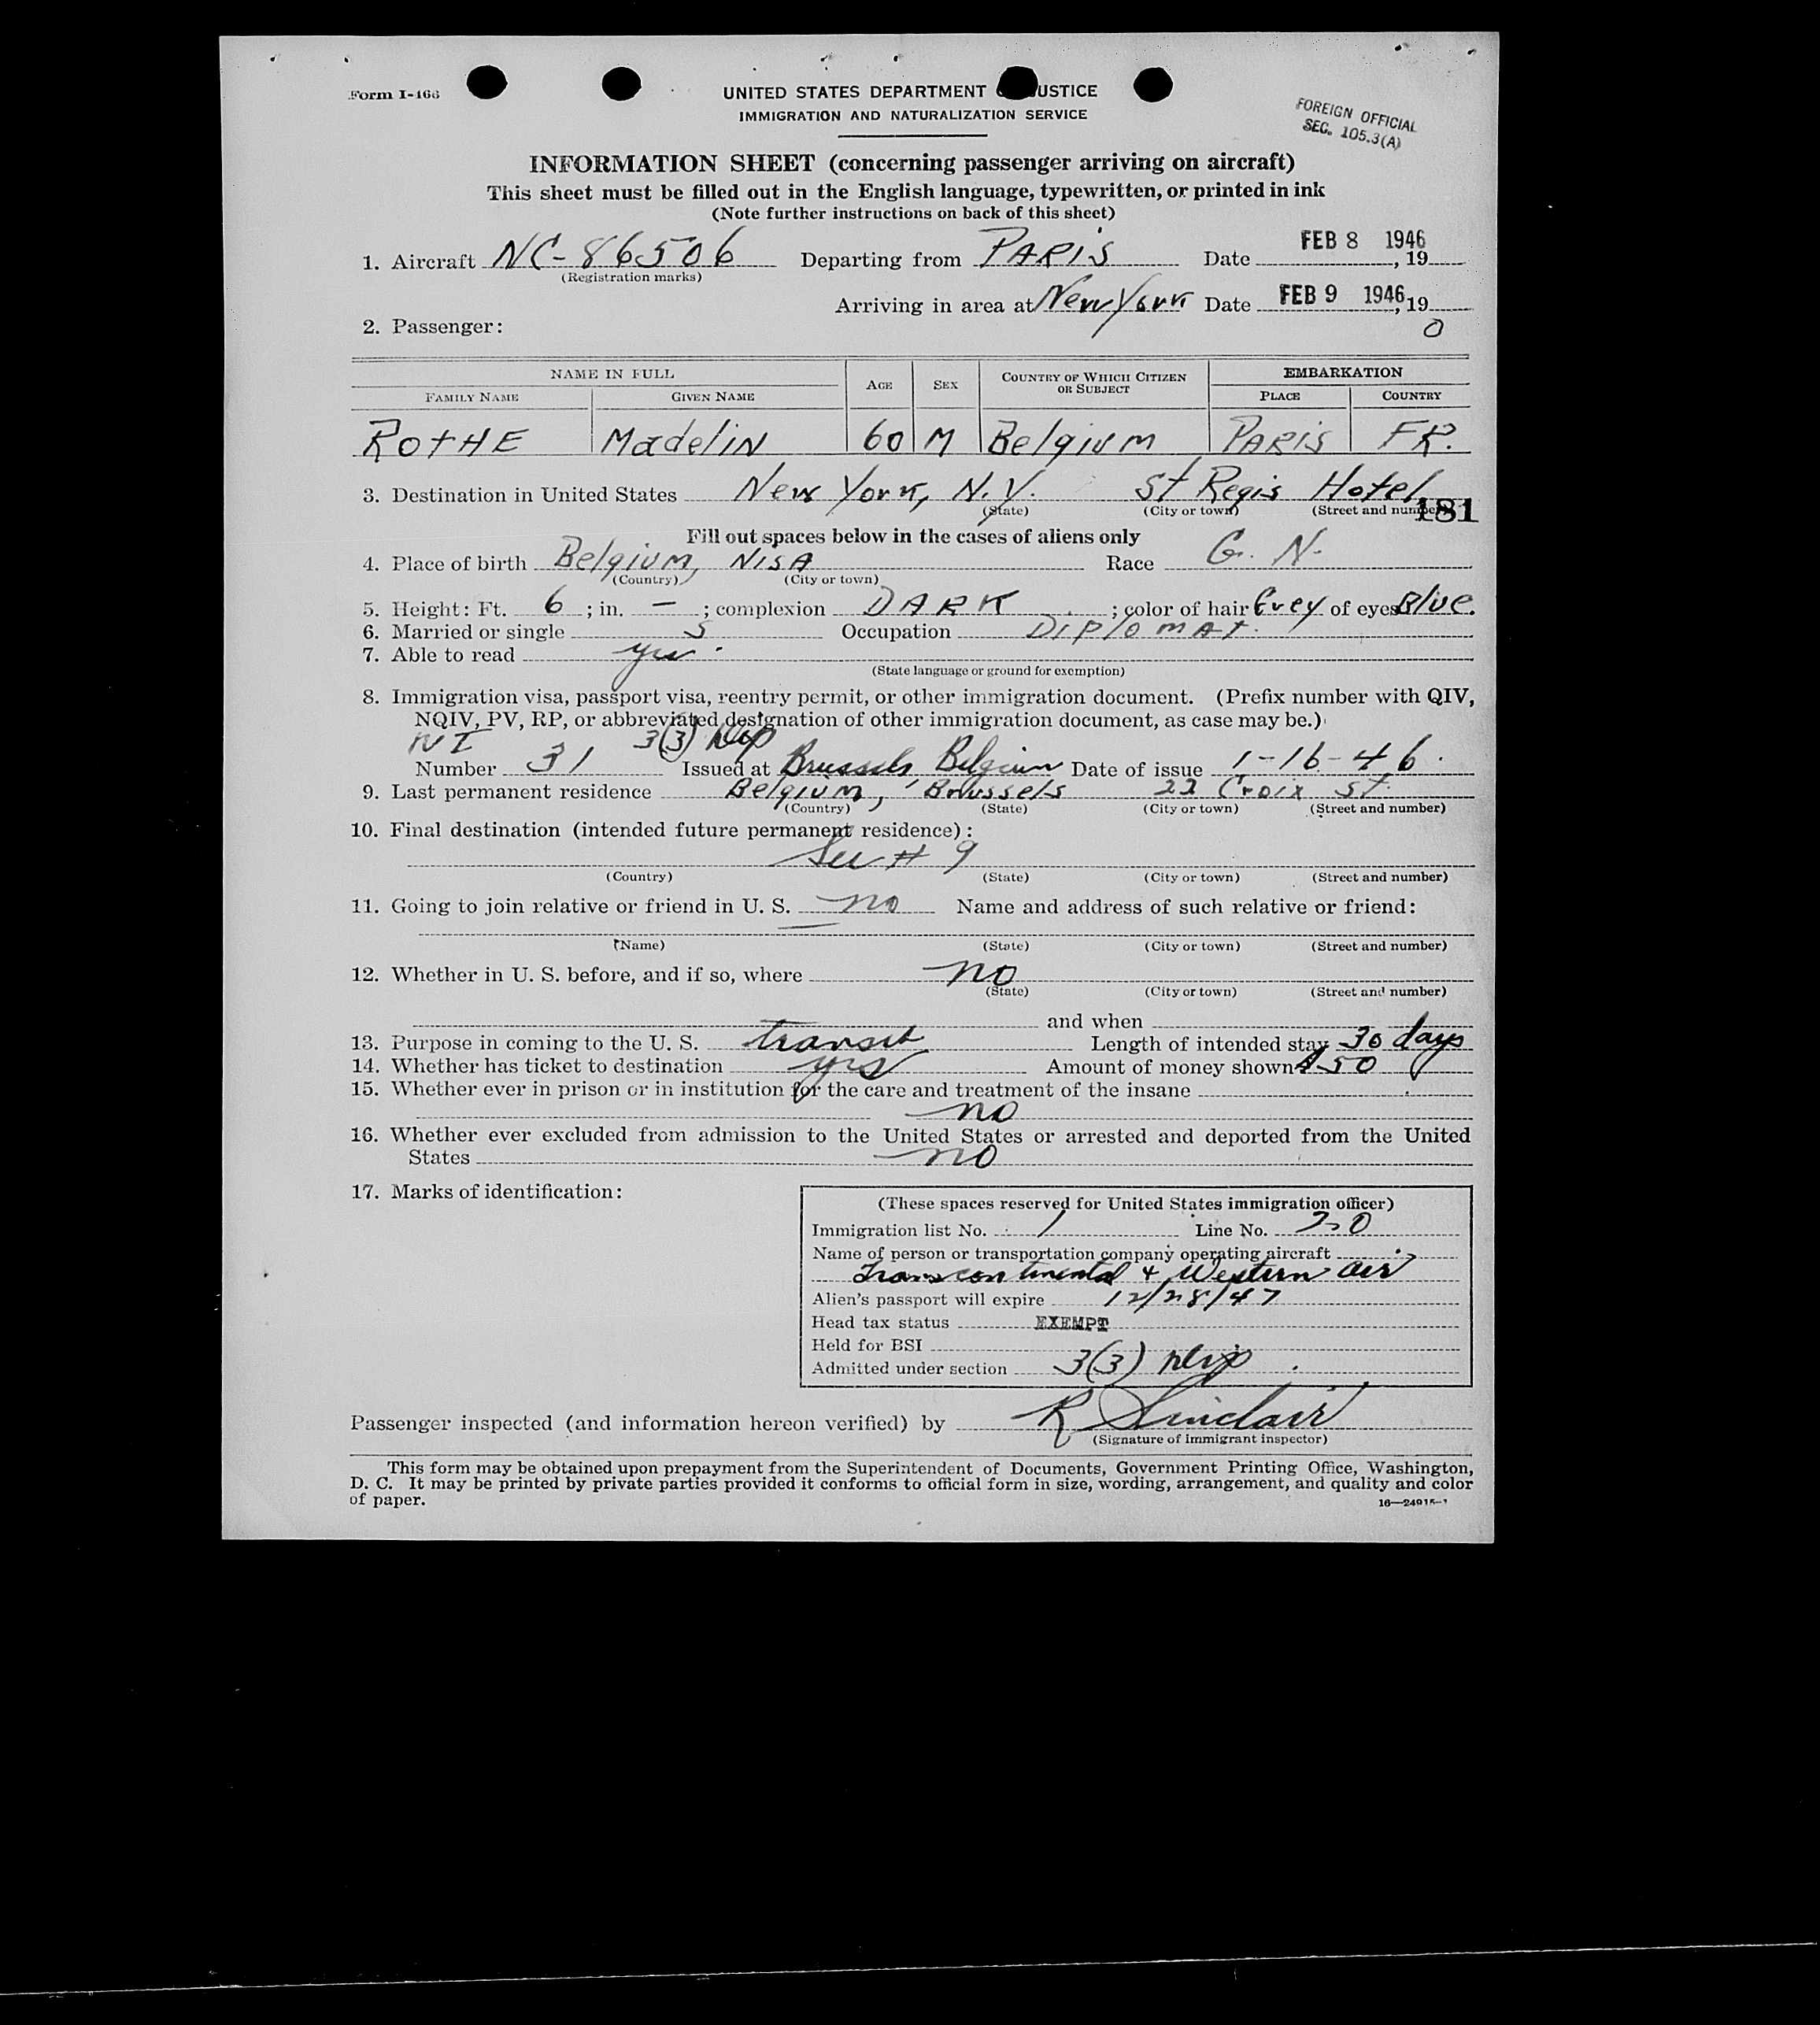 Form I-466
UNITED STATES DEPARTMENT USTICE
IMMIGRATION AND NATURALIZATION SERVICE
FOREIGN OFFICIAL
SEC. 105.3(A)
INFORMATION SHEET (concerning passenger arriving on aircraft)
This sheet must be filled out in the English language, typewritten, or printed in ink
(Note further instructions on back of this sheet)
1. Aircraft NC-86506 Departing from PARIS Date FEB 8 1946, 19
(Registration marks)
Arriving in area at New York Date FEB 9 1946, 19
2. Passenger: 0
NAME IN FULL AGE SEX COUNTRY OF WHICH CITIZEN OR SUBJECT EMBARKATION
FAMILY NAME GIVEN NAME PLACE COUNTRY
ROTHE MadeliN 60 M Belgium PARIS FR.
3. Destination in United States New York, N.Y. St Regis Hotel
(State) (City or town) (Street and number)
181
Fill out spaces below in the cases of aliens only
4. Place of birth Belgium, NisA Race G. N.
(Country) (City or town)
5. Height: Ft. 6 ; in. — ; complexion DARK ; color of hair Grey of eyes Blue.
6. Married or single S Occupation Diplomat.
7. Able to read yes
(State language or ground for exemption)
8. Immigration visa, passport visa, reentry permit, or other immigration document. (Prefix number with QIV,
NQIV, PV, RP, or abbreviated designation of other immigration document, as case may be.)
NI 3(3)
Number 31 Issued at Brussels Belgium Date of issue 1-16-46.
9. Last permanent residence Belgium, Brussels 22 Croix St.
(Country) (State) (City or town) (Street and number)
10. Final destination (intended future permanent residence):
See # 9
(Country) (State) (City or town) (Street and number)
11. Going to join relative or friend in U. S. no Name and address of such relative or friend:
(Name) (State) (City or town) (Street and number)
12. Whether in U. S. before, and if so, where no
(State) (City or town) (Street and number)
and when
13. Purpose in coming to the U. S. transit Length of intended stay 30 days
14. Whether has ticket to destination yes Amount of money shown $50
15. Whether ever in prison or in institution for the care and treatment of the insane
no
16. Whether ever excluded from admission to the United States or arrested and deported from the United
States no
17. Marks of identification:
(These spaces reserved for United States immigration officer)
Immigration list No. 1 Line No. 20
Name of person or transportation company operating aircraft
Transcontinental & Western Air
Alien's passport will expire 12/28/47
Head tax status EXEMPT
Held for BSI
Admitted under section 3(3)
Passenger inspected (and information hereon verified) by R Sinclair
(Signature of immigrant inspector)
This form may be obtained upon prepayment from the Superintendent of Documents, Government Printing Office, Washington,
D. C. It may be printed by private parties provided it conforms to official form in size, wording, arrangement, and quality and color
of paper.